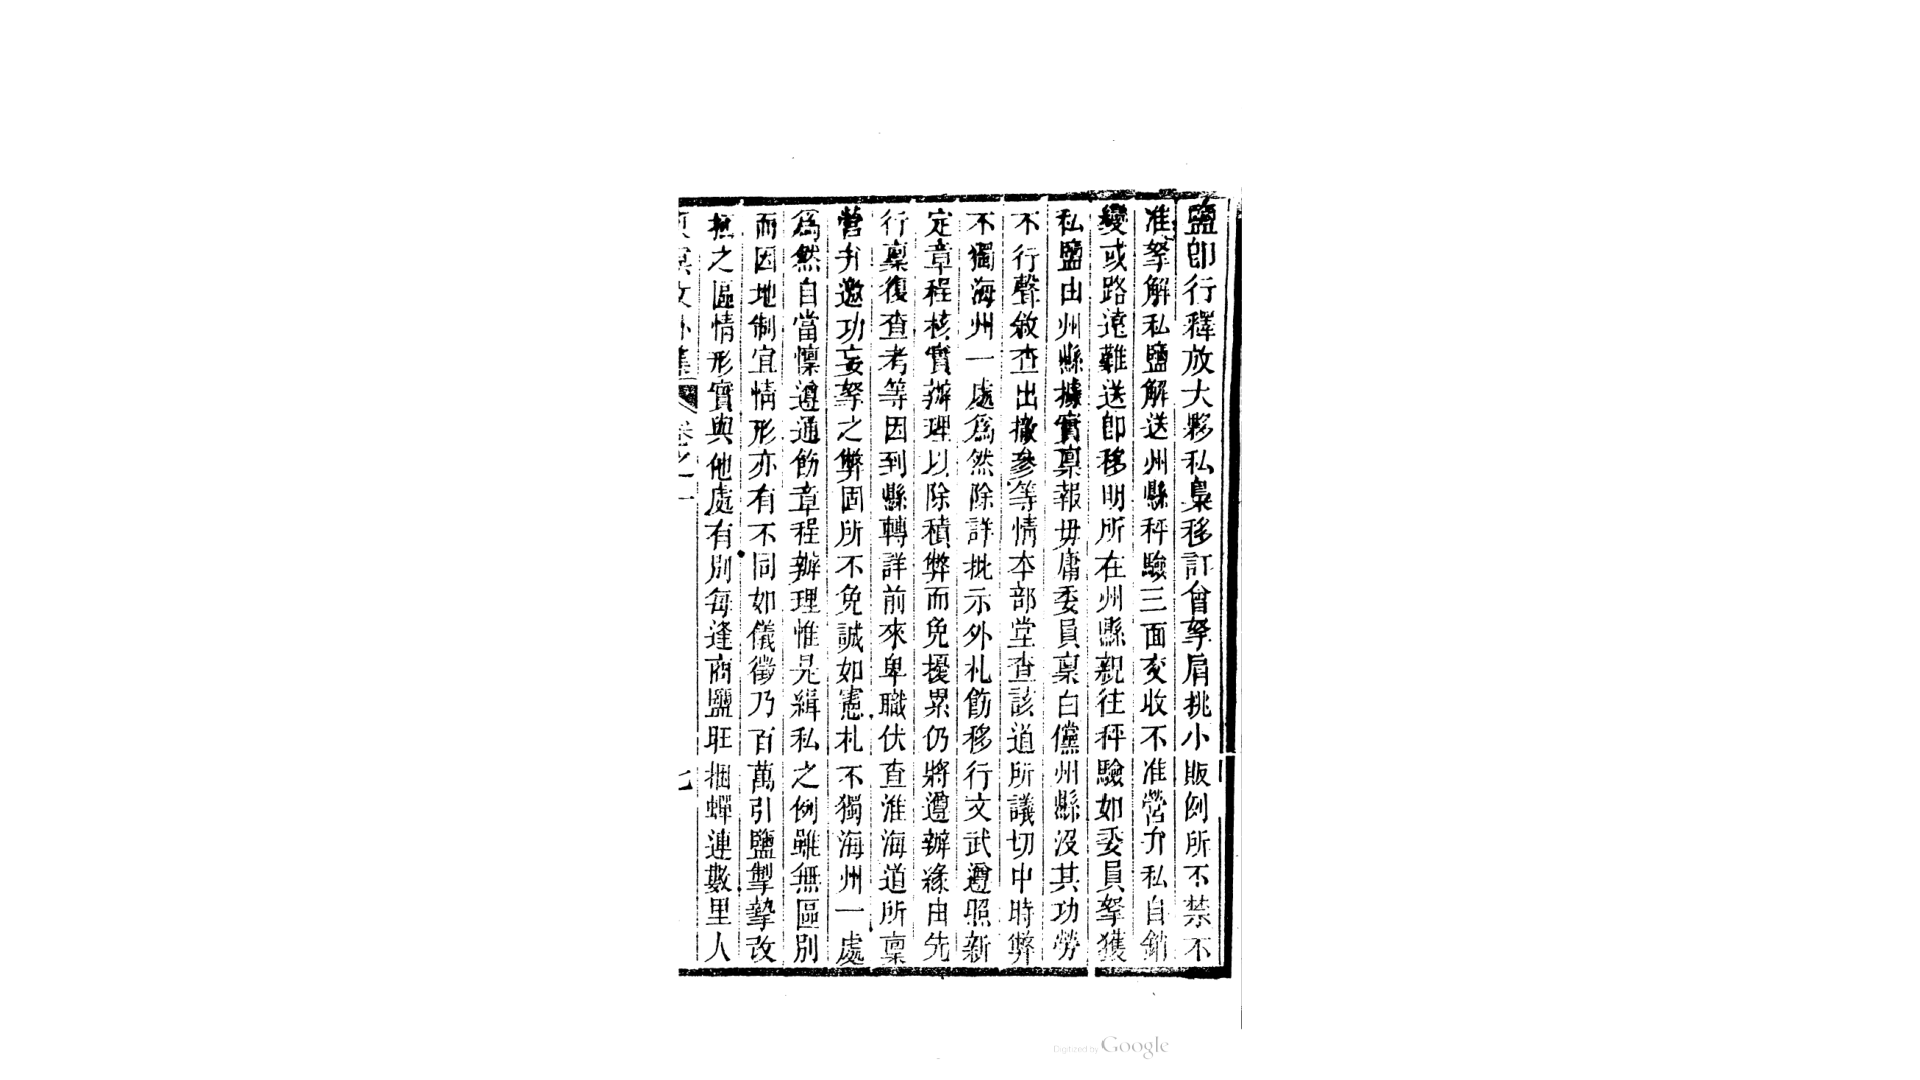 鹽卽行釋放大夥私梟移訂會拏肩挑小販例所不禁不
准拏解私鹽解送州縣秤驗三面交收不准營弁私自銷
變或路遠難送卽移明所在州縣親往秤驗如委員拏獲
私鹽由州縣據實稟報毋庸委員稟白儻州縣沒其功勞
不行聲敘查出撤參等情本部堂查該道所議切中時弊
不獨海州一處爲然除詳批示外札飭移行文武遵照新
定章程核實辦理以除積弊而免擾累仍將遵辦緣由先
行稟復查考等因到縣轉詳前來卑職伏查淮海道所稟
營弁邀功妄拏之弊固所不免誠如憲札不獨海州一處
爲然自當懍遵通飭章程辦理惟是緝私之例雖無區別
而因地制宜情形亦有不同如儀徵乃百萬引鹽掣摯改
捆之區情形實與他處有別每逢商鹽旺捆蟬連數里人
卷之一
七
Digitized by Google